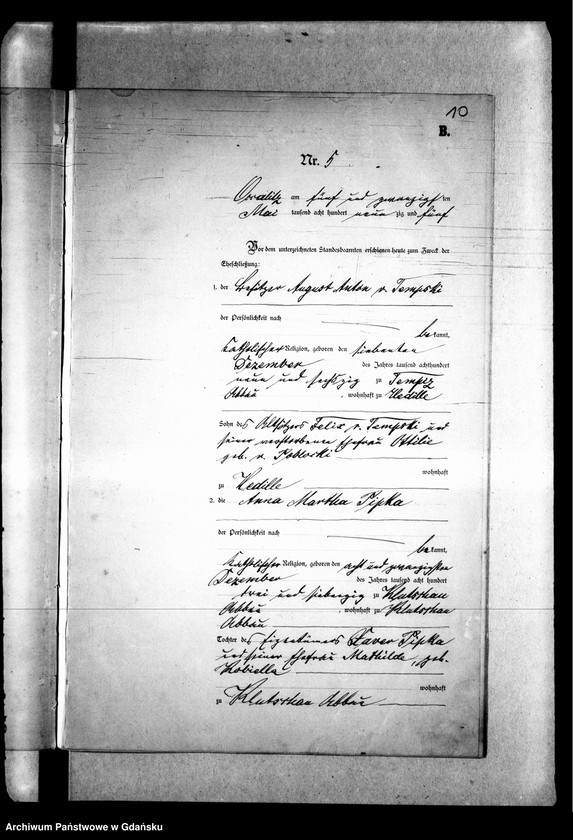 10
B.
Nr. 5
Ossalitz am fünf und zwanzigsten
Mai tausend acht hundert neun zig und fünf
Vor dem unterzeichneten Standesbeamten erschienen heute zum Zweck der
Eheschließung:
1. der Besitzer August Anton v. Tempski
der Persönlichkeit nach
bekannt,
katholischer Religion, geboren den siebenten
Dezember des Jahres tausend achthundert
neun und sechszig zu Tempiz
Abbau, wohnhaft zu Wedille
Sohn des Altsitzers Felix v. Tempski und
seiner verstorbenen Ehefrau Ottilie
geb. v.
wohnhaft
zu Wedille
2. die Anna Martha Pipka
der Persönlichkeit nach
bekannt,
katholischer Religion, geboren den acht und zwanzigsten
Dezember des Jahres tausend acht hundert
drei und siebenzig zu Klutschau
Abbau, wohnhaft zu Klutschau
Abbau
Tochter des Eigentümers Xaver Pipka
und seiner Ehefrau Mathilde, geb.
Kobiella
wohnhaft
zu Klutschau Abbau
Archiwum Państwowe w Gdańsku